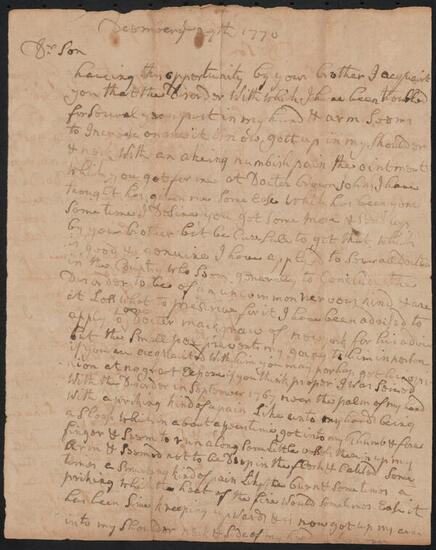 Decembery 29th 1770
Dr Son
having this opportunity by your brother I acquaint
you that the Disorder With which I have been troubled
for several years past in my hand & arm Seems
to Increase on me it is now gott up in my Shoulder
& neck With an akeing numbish pain the ointment
Which you got for me at Docter I have
thought has given me Some ease Which has been gone
Some time I Desire you get Some more & Send
by your brother but be Carefull to get that Which
is good & genuine I have applyed to Severall Docters
in the Country Who Seem generally to Conclude the
Disorder to be of an uncommon nervous kind & are
at Loss What to prescribe for it I have been advised to
apply to Docter of newyork for his advice
but the Small pox preventing my going to him in person
if you are acquainted With him you may perhaps get his
at no great Expence if you think proper I was Seized
With the Disorder in September 1767 near the palm of my hand
With a pricking kind of pain Like unto my hands being
aSleep Which in about a year time got into my thumb & fore
finger & Seem to run along Something up my
arm & Seemed not to be Deep in the flesh & Earted Some
times a Smarting kind of pain Like a burn & Sometimes a
pricking Which the heat of the fire Would Sometimes Ease it
has been Since keeping upwards & is now got up my arm
into my Shoulder neck & Side of my